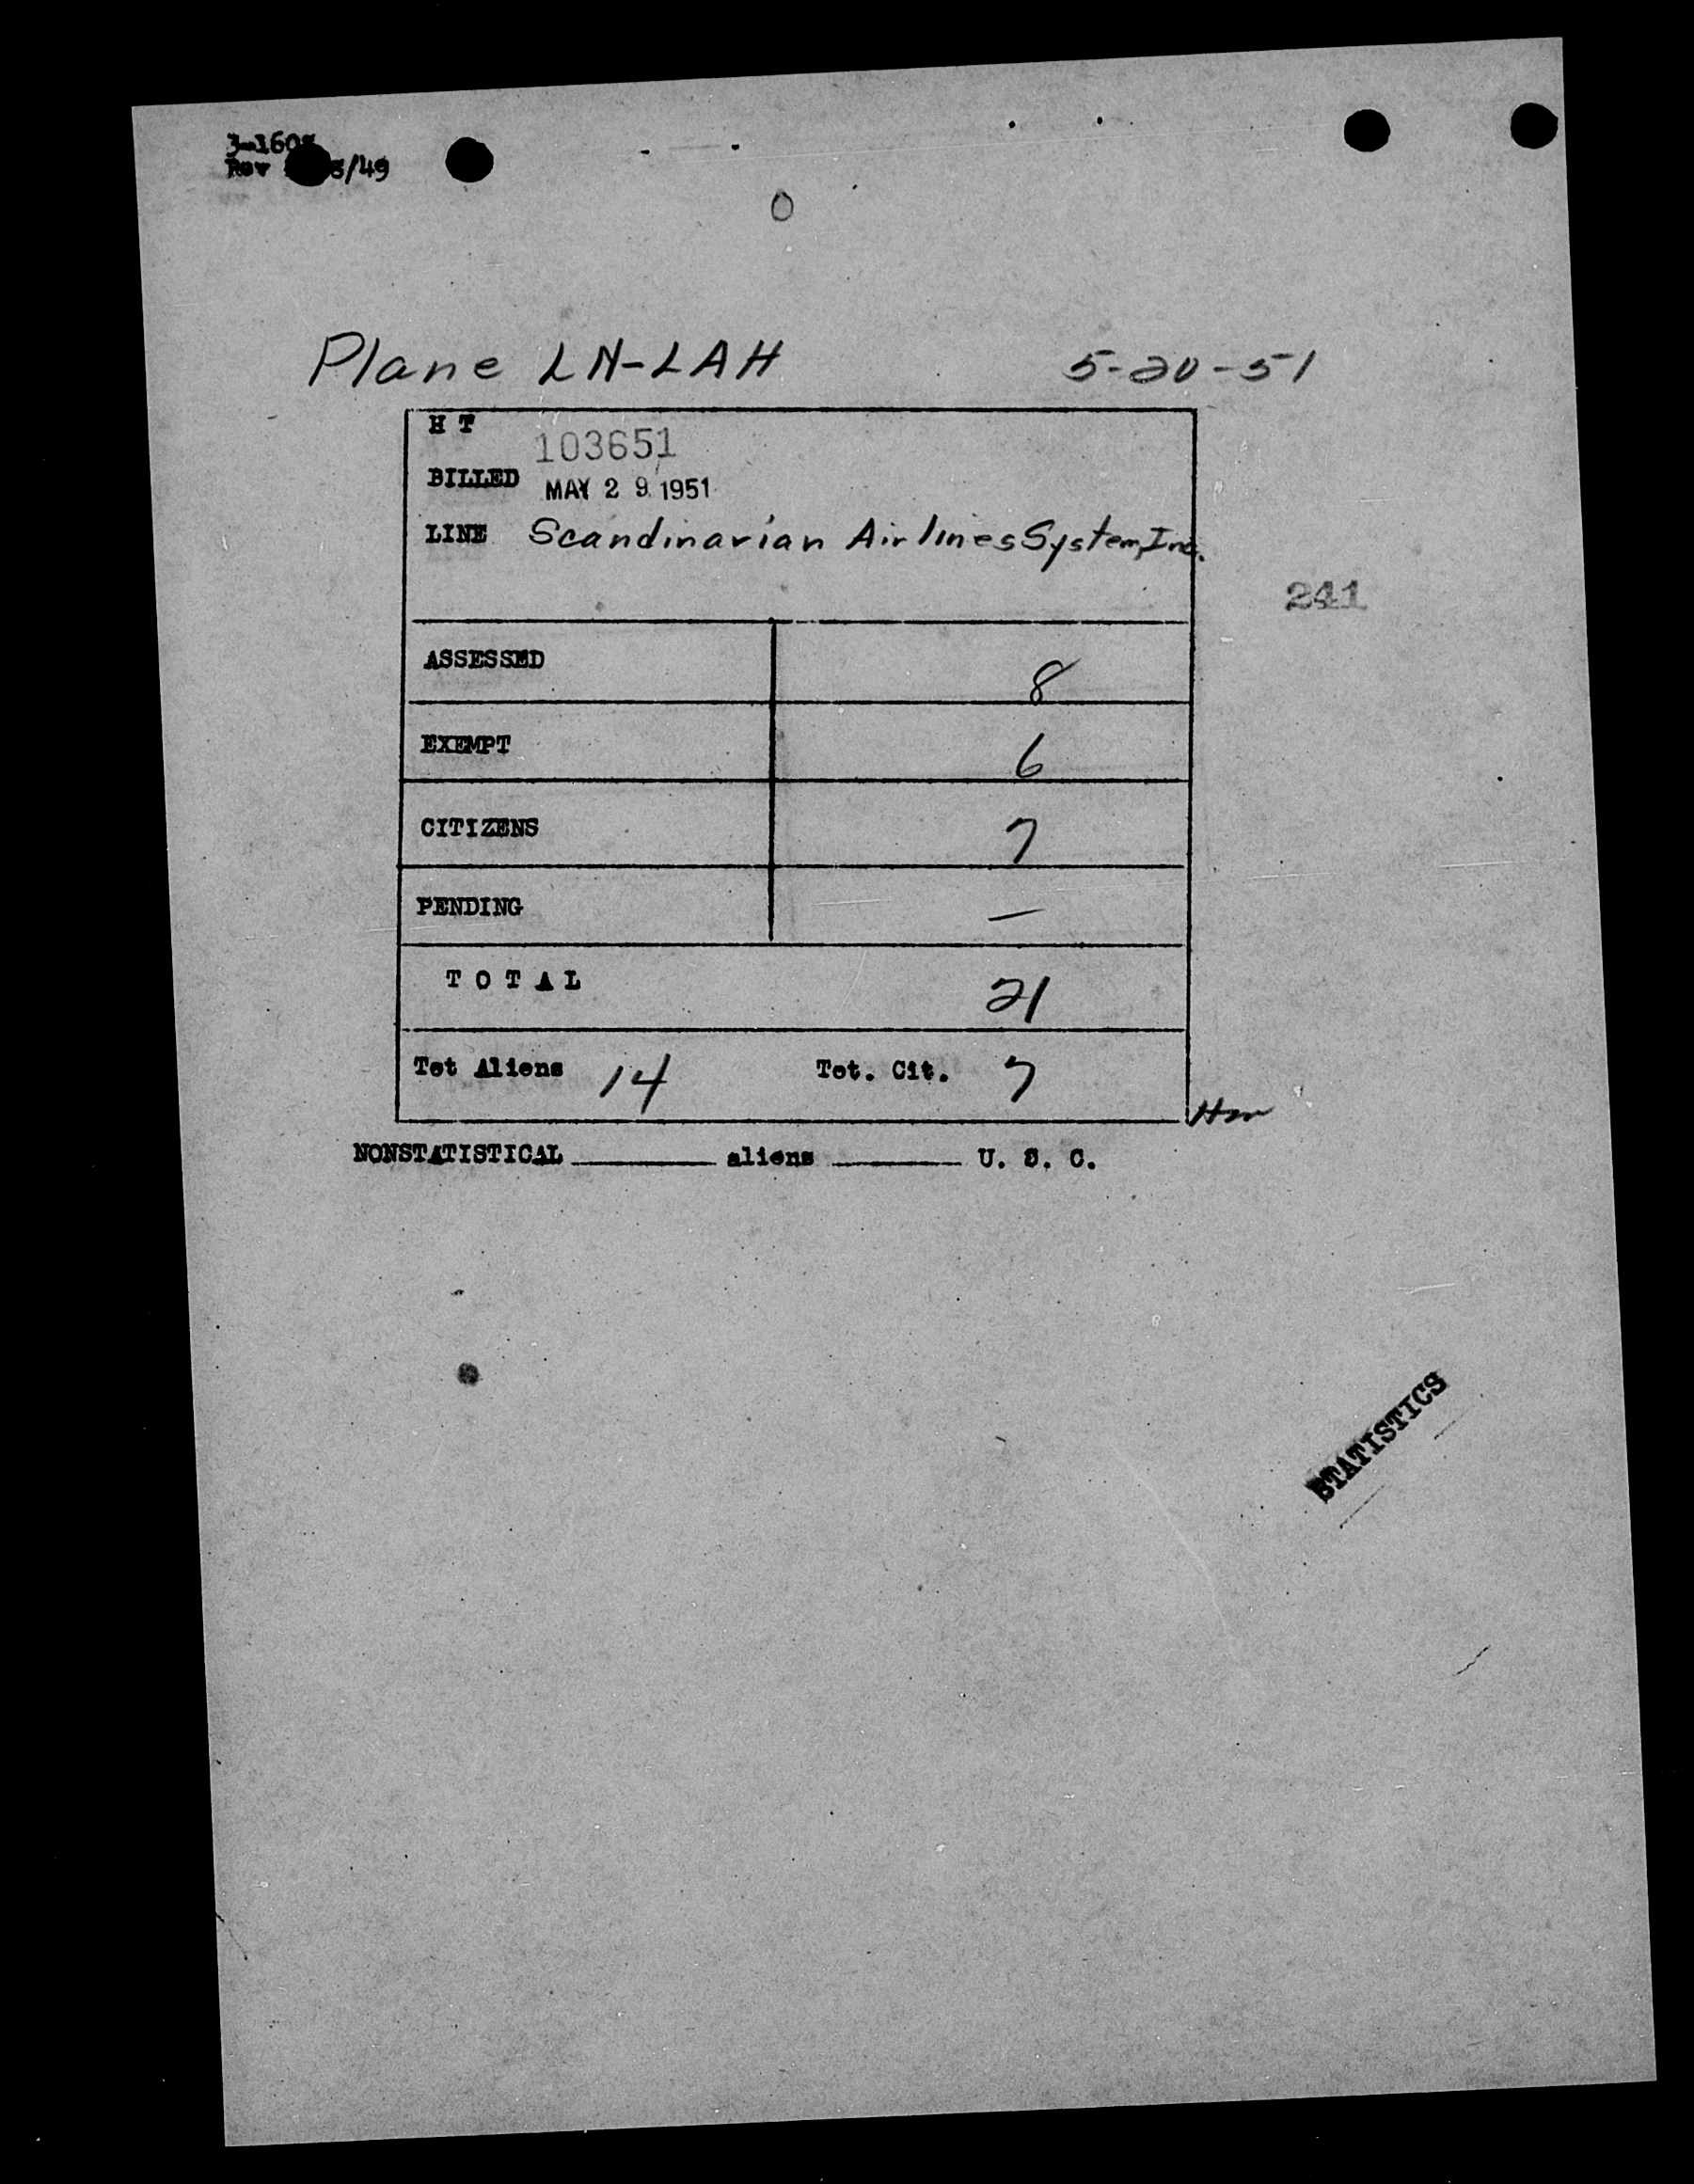 3-160
Rev /49
O
Plane LN-LAH 5-20-51
H T 103651
BILLED MAY 29 1951
LINE Scandinavian Airlines System, Inc.
241
ASSESSED 8
EXEMPT 6
CITIZENS 7
PENDING —
TOTAL 21
Tot Aliens 14 Tot. Cit. 7
NONSTATISTICAL ______ aliens ______ U. S. C.
STATISTICS